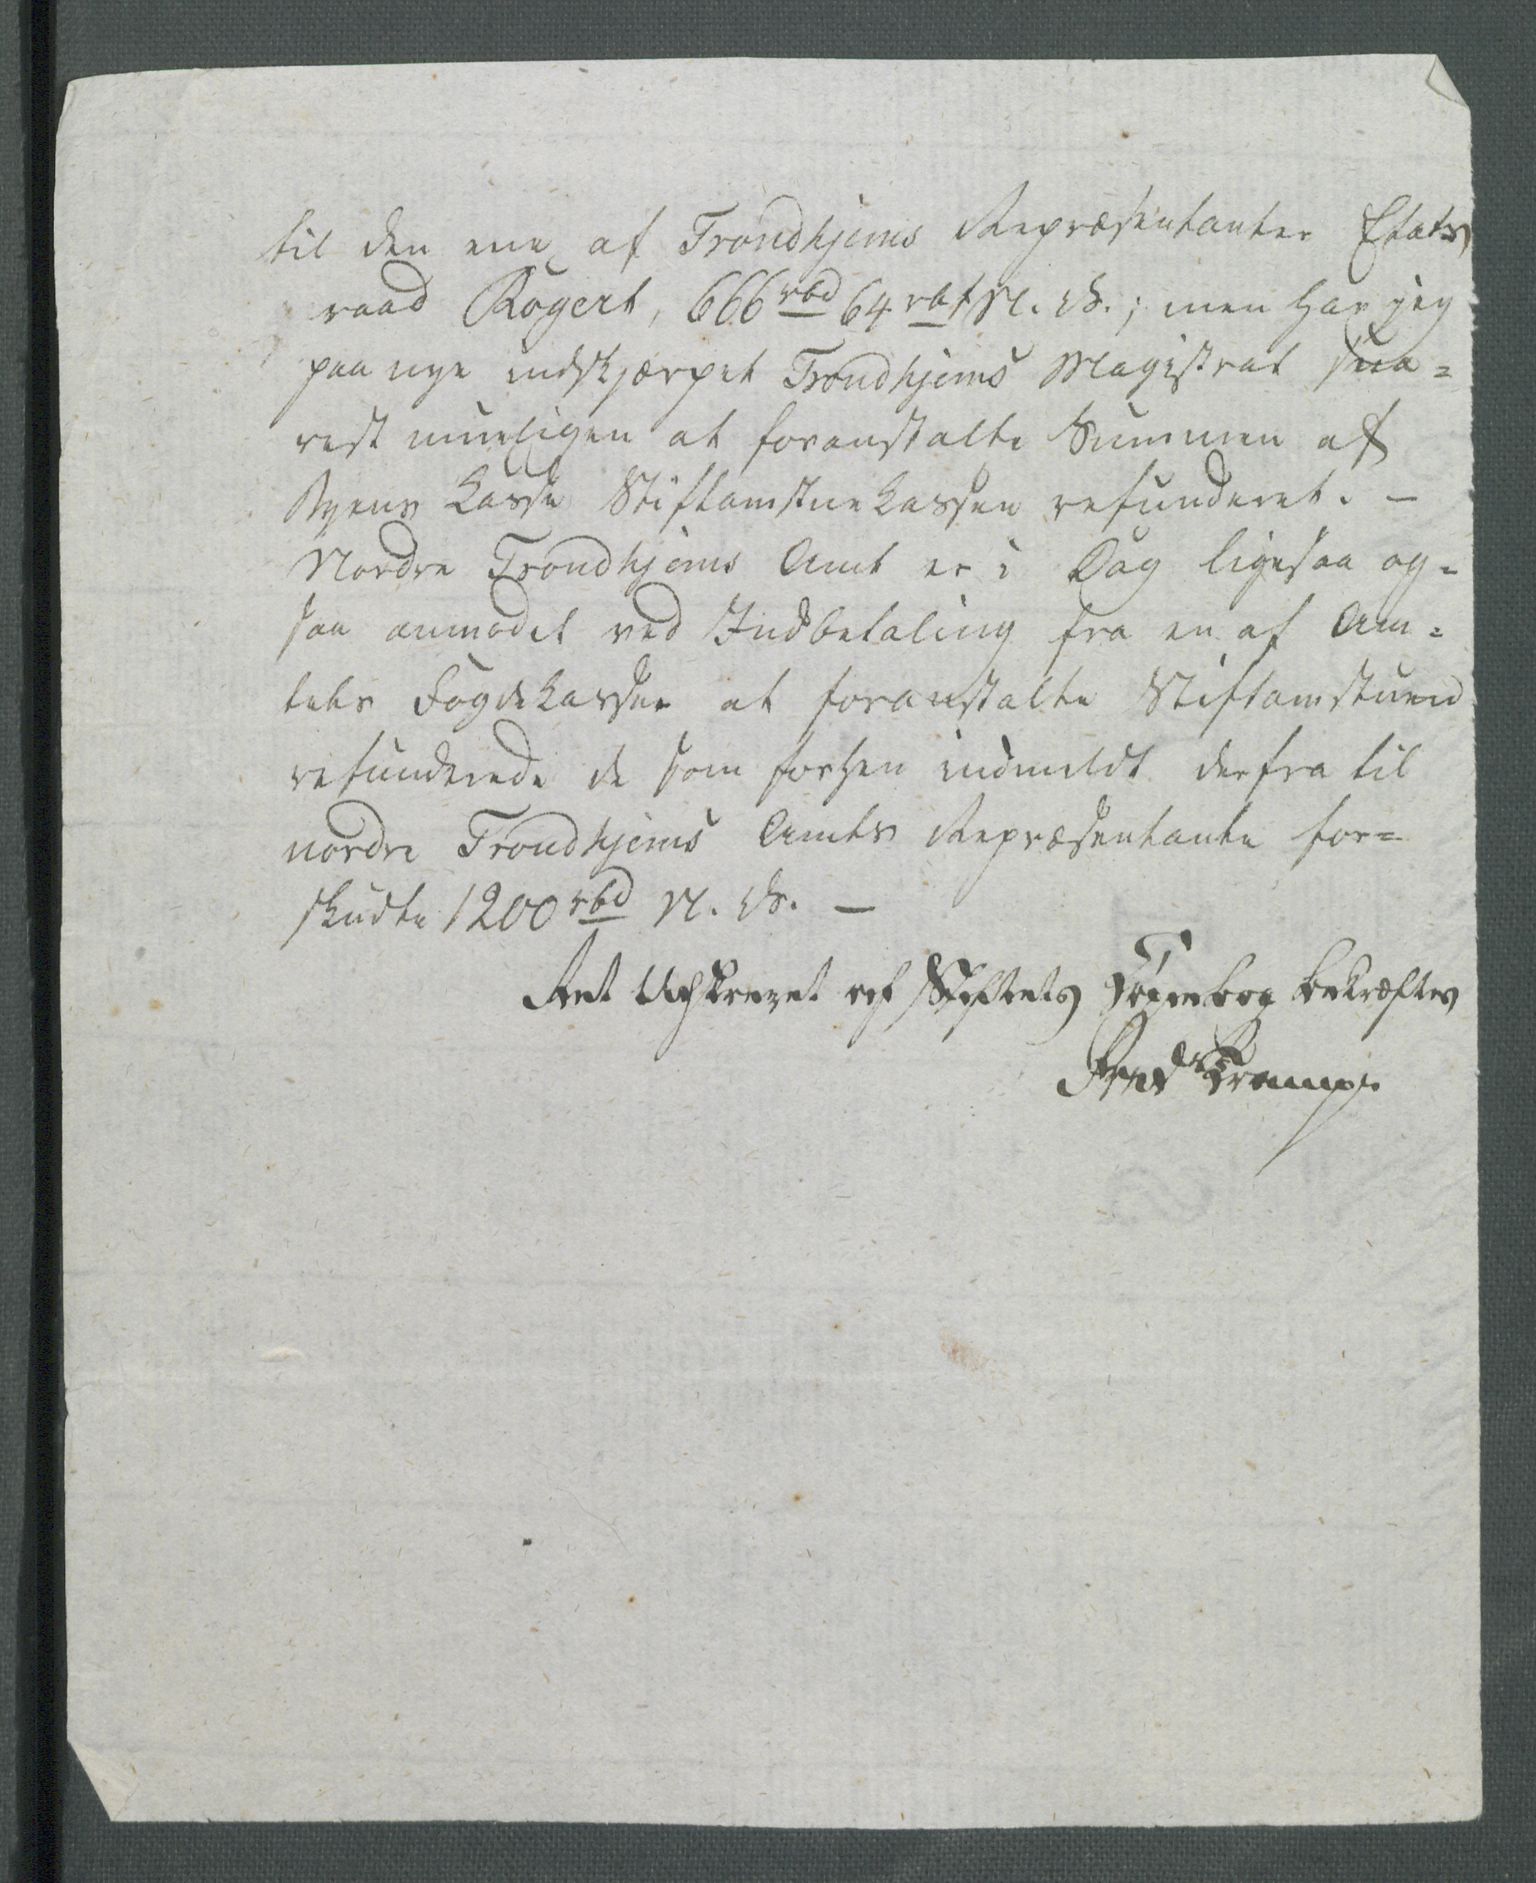 til den ene af Trondhjems Repræsentanter Etats
raad Rogert, 666 rbd 64 rbs N. V.; men har jeg
paa nye indskjærpet Trondhjems Magistrat sna=
rest mueligen at foranstalte Summen af
Byens Kasse Stiftamstuekassen refunderet. —
Nordre Trondhjems Amt er i Dag ligesaa og=
saa anmodet ved Indbetaling fra en af Am=
tets Fogdekasser at foranstalte Stiftamstuen
refunderede de som forhen indmeldt derfra til
nordre Trondhjems Amts Repræsentante for=
skudte 1200 rbd N. V. —
Ret Udskrevet af Stiftets bekræftes
Fred Trampe